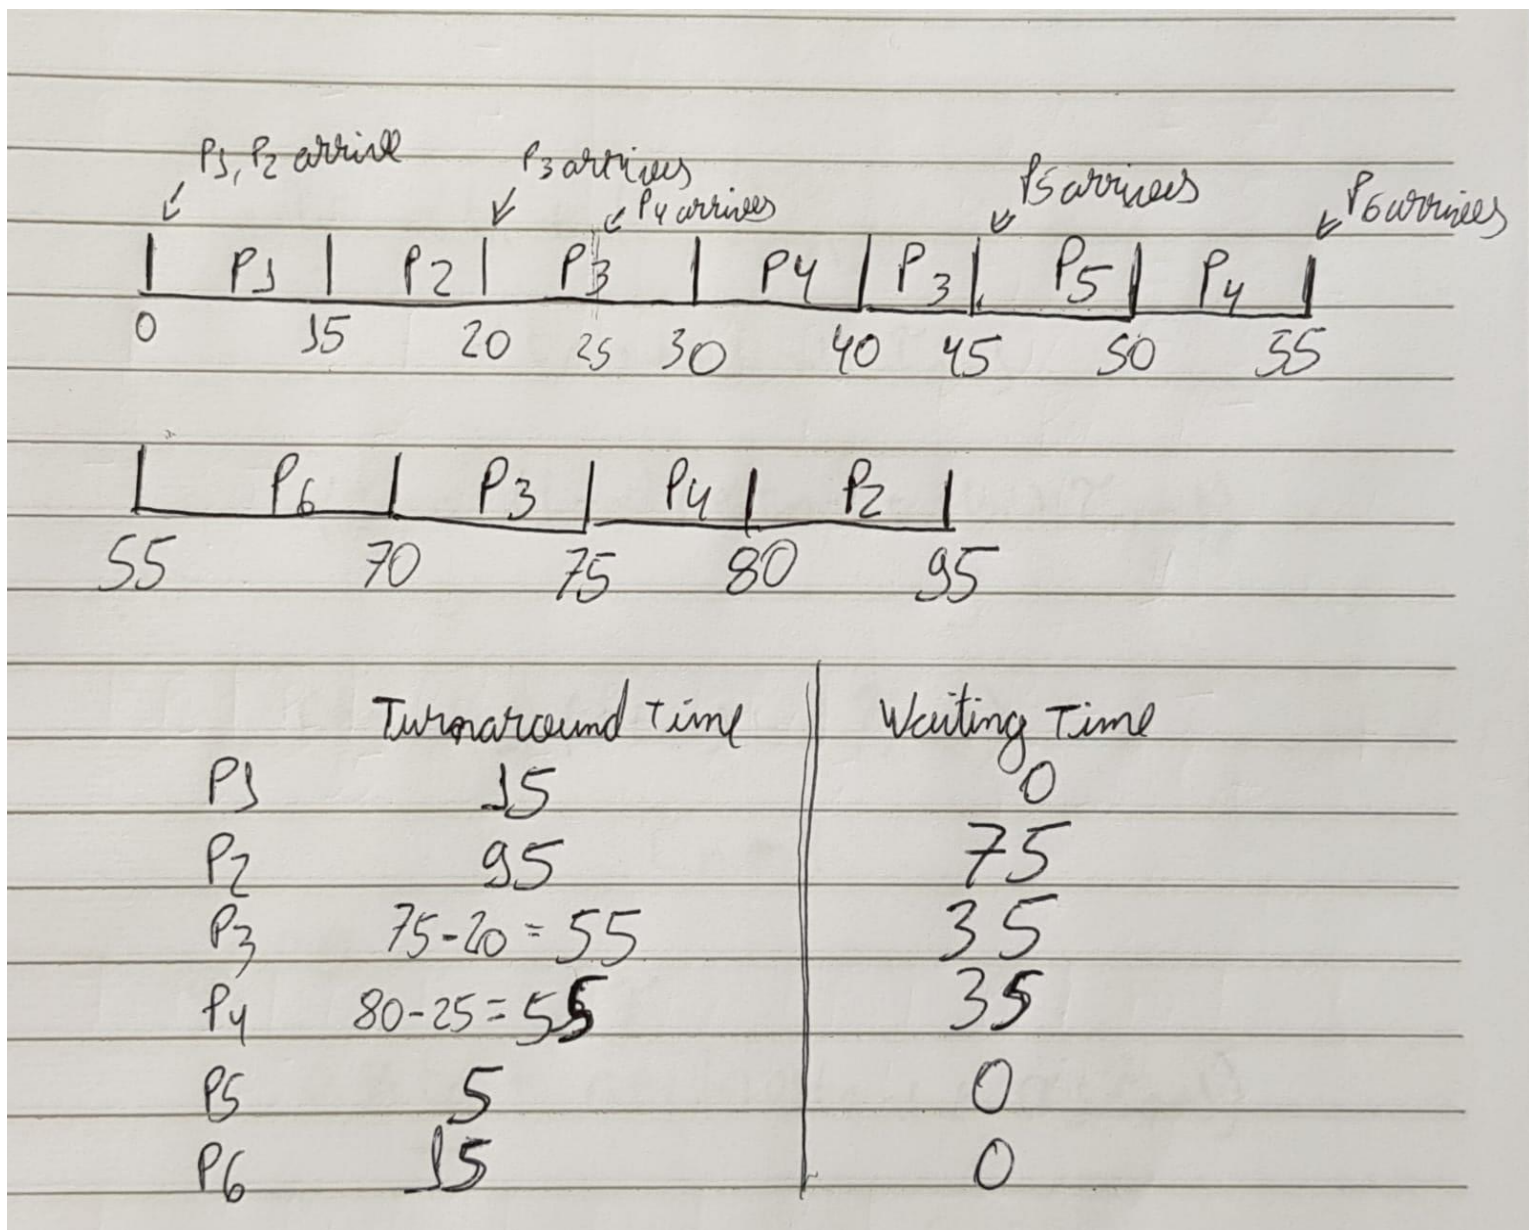 P1, P2 arrive
P3 arrives
P4 arrives
P5 arrives
P6 arrives
P1 P2 P3 P4 P3 P5 P4
0 15 20 25 30 40 45 50 55
P6 P3 P4 P2
55 70 75 80 95
Turnaround Time Waiting Time
P1 15 0
P2 95 75
P3 75-20 = 55 35
P4 80-25 = 55 35
P5 5 0
P6 15 0